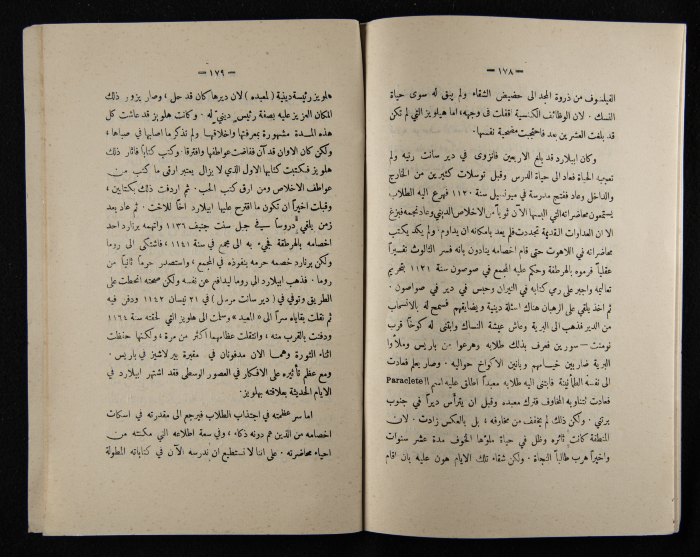 — ١٧٨ —
الفيلسوف من ذروة المجد الى حضيض الشقاء ولم يبق له سوى حياة
النسك . لان الوظائف الكنسية اقفلت في وجهه، اما هيلويز التي لم تكن
قد بلغت العشرين بعد فاحتجبت مضحية نفسها .
وكان ابيلارد قد بلغ الاربعين فانزوى في دير سانت رنيه ولم
تعجبه الحياة فعاد الى حياة الدرس وقبل توسلات كثيرين من الخارج
والداخل وعاد ففتح مدرسة في سنة ١١٢٠ فهرع اليه الطلاب
يستمعون محاضراته التي البسها الآن ثوباً من الاخلاص الديني وعاد نجمه فبزغ
الا ان العداوات القديمة تجددت فلم يعد بامكانه ان يداوم . ولم يكد يكتب
محاضراته في اللاهوت حتى قام اخصامه ينادون بانه فسر الثالوث تفسيراً
عقلياً فرموه بالهرطقة وحكم عليه المجمع في صوصون سنة ١١٢١ بتحريم
تعاليمه واجبر على رمي كتابه في النيران وحبس في دير في صواصون .
ثم اخذ يلقي على الرهبان هناك اسئلة دينية ويضايقهم فسمح له بالانسحاب
من الدير فذهب الى البرية وعاش عيشة النساك وابتنى له كوخاً قرب
نوجنت — سورين فعرف بذلك طلابه وهرعوا من باريس وملأوا
البرية ضاربين خيامهم وبانين الاكواخ حواليه . وصار يعلم فعادت
الى نفسه الطمأنينة فابتنى اليه طلابه معبداً اطلق عليه اسم ال Paraclete
فعادت لتناوبه المخاوف فترك معبده وقبل ان يترأس ديراً في جنوب
برتني . ولكن ذلك لم يخفف من مخاوفه ، بل بالعكس زادت . لان
المنطقة كانت ثائرة وظل في حياة ملؤها الخوف مدة عشر سنوات
واخيراً هرب طالباً النجاة . ولكن شقاء تلك الايام هون عليه بان اقام
— ١٧٩ —
هلويز رئيسة دينية ( لمعبده ) لان ديرها كان قد حل ، وصار يزور ذلك
المكان العزيز عليه بصفة رئيس ديني له . وكانت هلويز قد عاشت كل
هذه المدة مشهورة بمعرفتها واخلاقها ولم تذكر ما اصابها في صباها ،
ولكن كان الاوان قد آن ففاضت عواطفها وافترقا وكتب كتاباً فاثار ذلك
هلويز فكتبت كتابها الاول الذي لا يزال يعتبر ارقى ما كتب من
عواطف الاخلاص ومن ارق كتب الحب . ثم اردفت ذلك بكتابين ،
وقبلت اخيراً ان تكون ما اقترح عليها ابيلارد اخاً للاخت . ثم عاد بعد
زمن يلقي دروساً في جبل سنت جنيف ١١٣٦ واتهمه برنارد احد
اخصامه بالهرطقة فجيء به الى مجمع في سنة ١١٤١ ، فاشتكى الى روما
ولكن برنارد خصمه حرمه بنفوذه في المجمع ، واستصدر حرماً ثانياً من
روما . فذهب ابيلارد الى روما ليدافع عن نفسه ولكن صحته انحطت على
الطريق وتوفي في ( دير سانت مرمل ) في ٢١ نيسان ١١٤٢ ودفن فيه
ثم نقلت بقاياه سراً الى « العبد » وسلمت الى هلويز التي لحقته سنة ١١٦٤
ودفنت بالقرب منه ، وانتقلت عظامهما اكثر من مرة ، ولكنها حفظت
اثناء الثورة وهما الان مدفونان في مقبرة بير لاشيز في باريس .
ومع عظم تأثيره على الافكار في العصور الوسطى فقد اشتهر ابيلارد في
الايام الحديثة بعلاقته بهلويز .
اما سر عظمته في اجتذاب الطلاب فيرجع الى مقدرته في اسكات
اخصامه من الذين هم دونه ذكاء ، وفي سعة اطلاعه التي مكنته من
احياء محاضرته . على اننا لا نستطيع ان ندرسه الآن في كتاباته المطولة